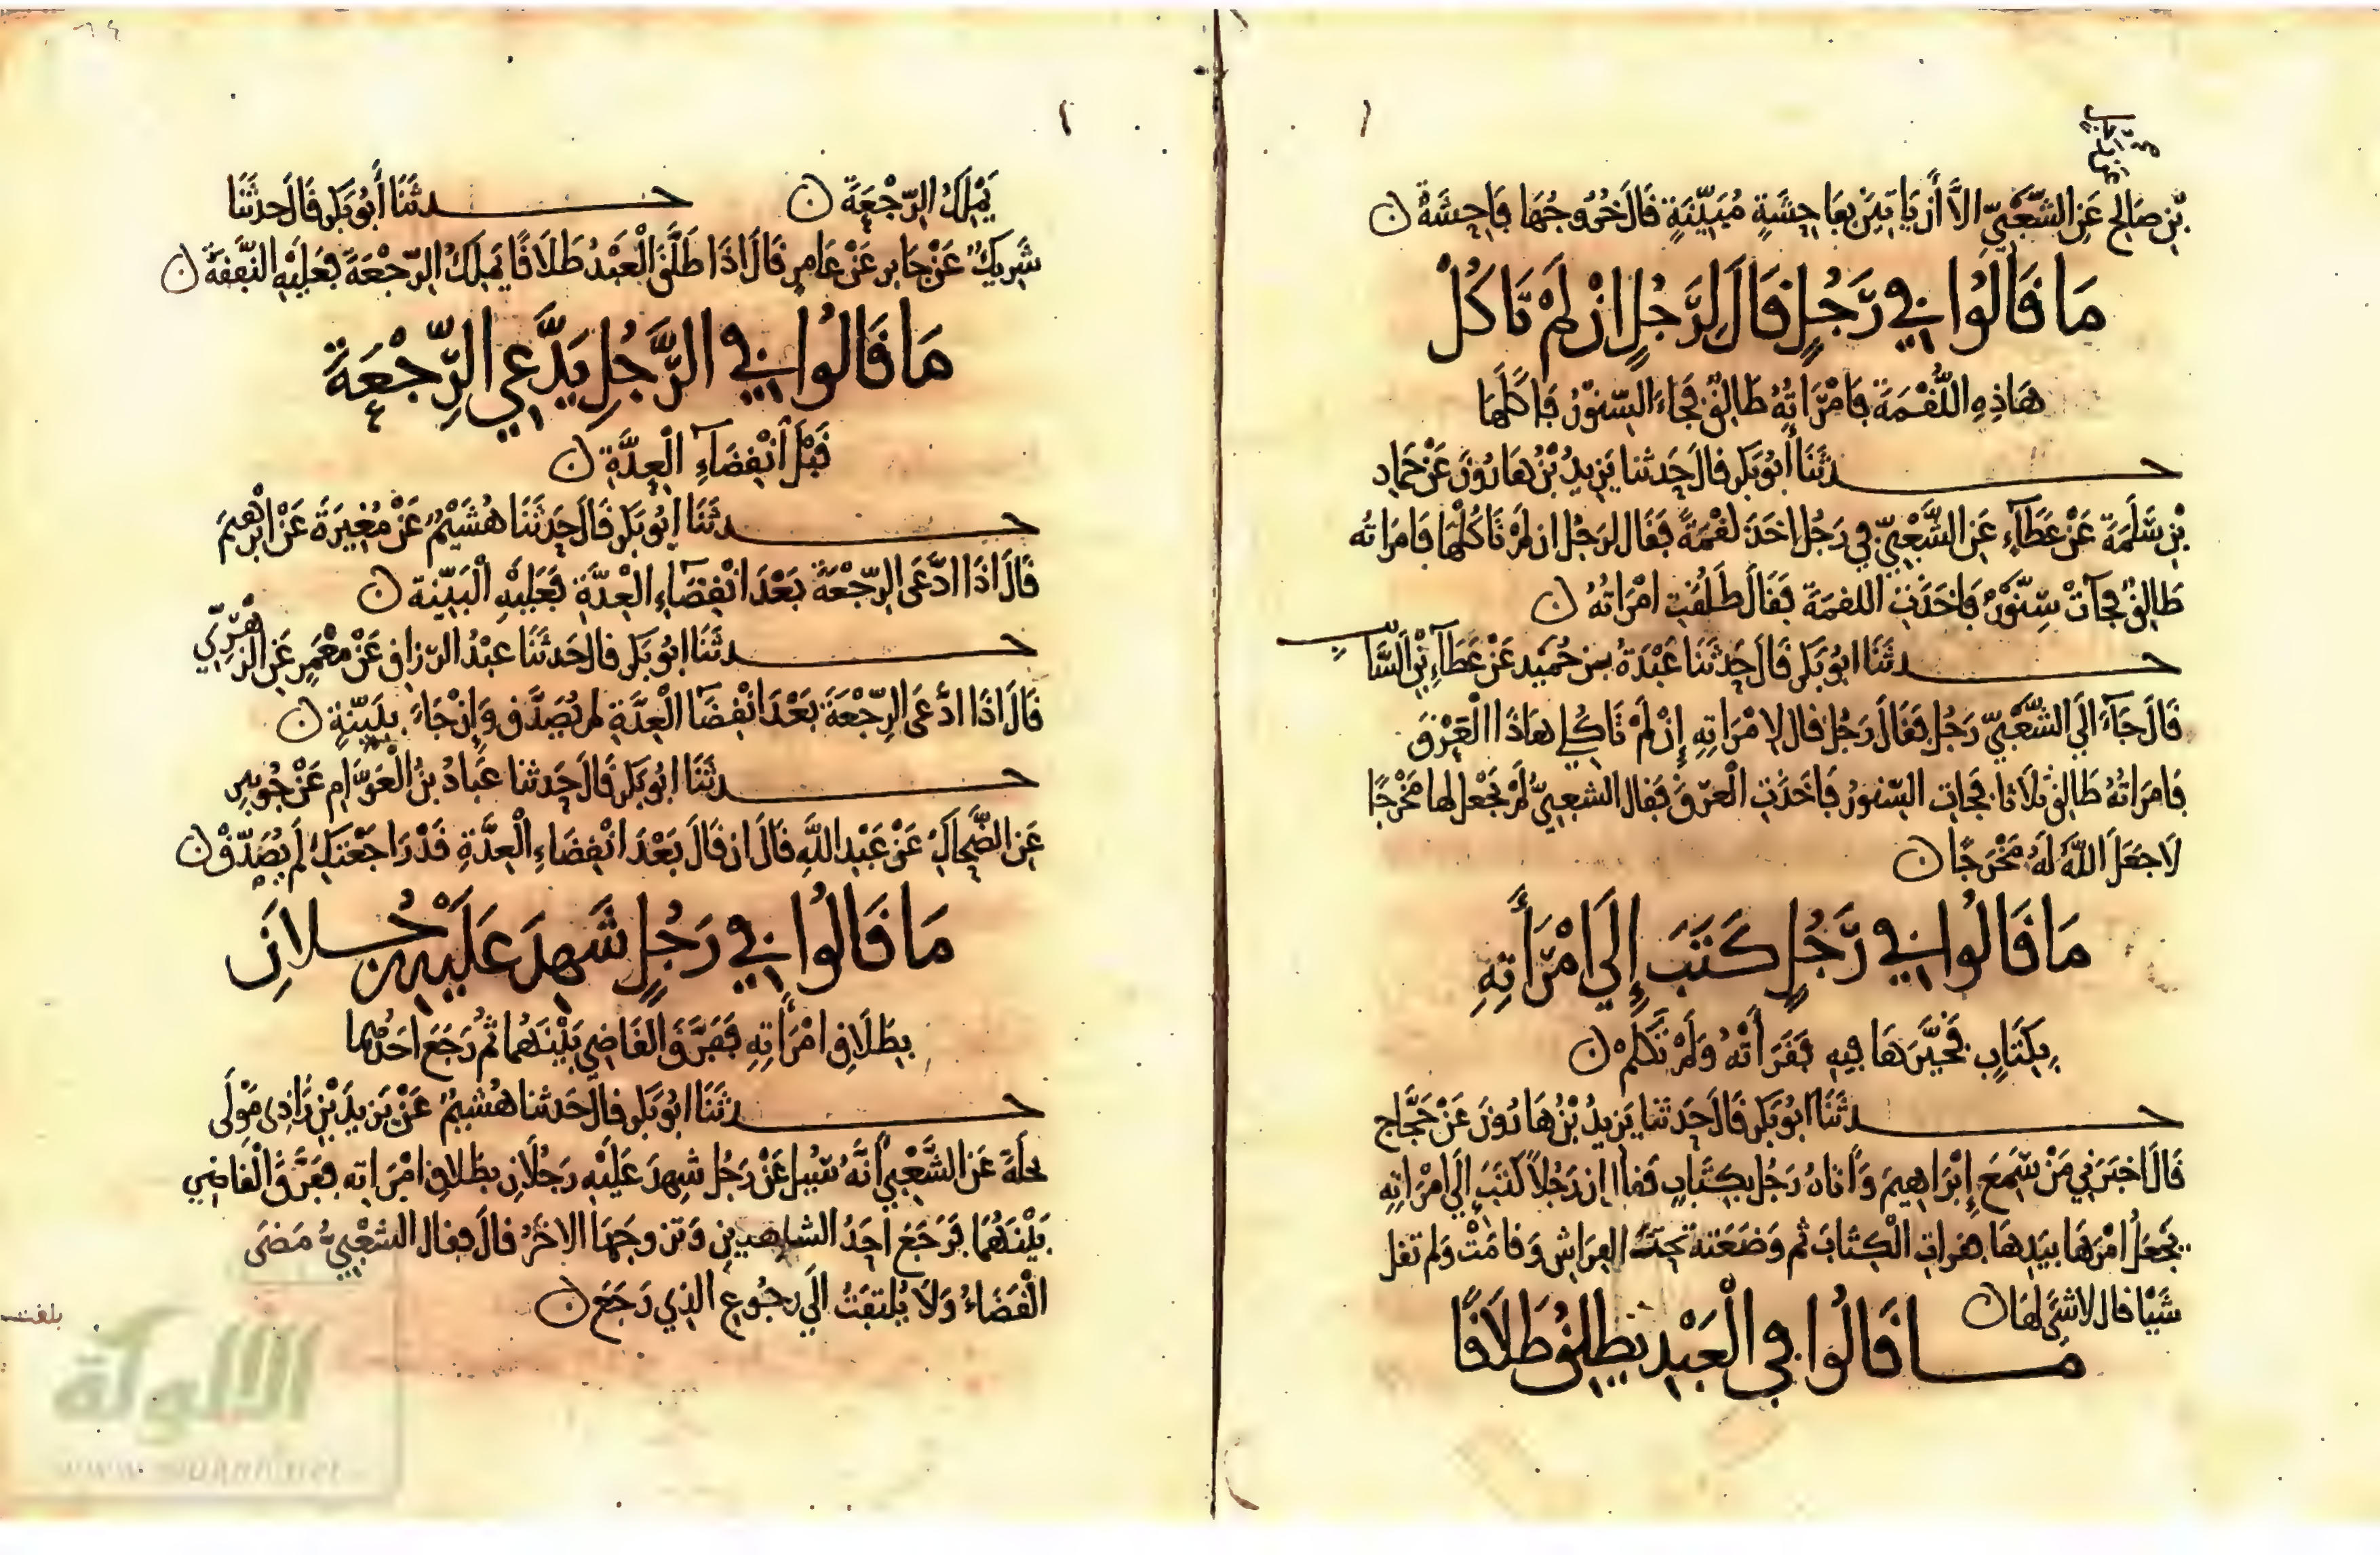 بْنِ صَالِحٍ عَنِ الشَّعْبِيِّ إلَّا أَن يَاتِينَ بِفَاحِشَةٍ مُبَيِّنَةٍ قَالَ خُرُوجُهَا فَاحِشَةٌ ن
مَا قَالُوا فِي رَّجُلٍ قَالَ لِرَجُلٍ إِنْ لَمْ تَاكُلْ
هَاذِهِ اللُّقْمَةَ فَامْرَاتُهُ طَالِقٌ فَجَاءَ السِّنَّوْرُ فَاكَلَهَا
حدثَنَا أَبُو بَكْرٍ قَالَ حَدثنا يَزِيدُ بْنُ هَارُونَ عَنْ حَمَّادِ
بْنِ سَلَمَةَ عَنْ عَطَآءٍ عَنِ الشَّعْبِيِّ فِي رَجُلٍ اخَذَ لُقْمَةً فَقَالَ لرَجُلٍ ان لَمْ تَاكُلْهَا فَامْرَاتُه
طَالِقٌ فجآتْ سِنَّوْرٌ فَاخَذَتِ اللقمَةَ فقَالَ طَلُقَتِ امْرَاتُهُ ن
حدثَنَا ابُو بَكْرٍ قَالَ حَدثَنَا عَبْدَةُ بن حُمَيْد عَنْ عَطَآءِ بْنِ السَّائب
قَالَ جَآءَ الَى الشَّعْبِيِّ رَجُلٌ فقَالَ رَجُلٌ قال لامْرَاتِهِ إِنْ لَمْ تَاكُلِي هَاذَا الْعَرْقَ
فَامرَاتُهُ طَالِق ثَلَاثا فجَات السِّنورُ فَاخَذَتِ الْعَرْقَ فقال الشعبِيُّ لَمْ يَجْعَلْ لها مَخْرَجًا
لَا جَعَلَ اللَّهُ لَهُ مَخْرَجًا ن
مَا قَالُوا فِي رَّجُلٍ كَتَبَ إِلَى امْرَأَتِهِ
بِكِتَابٍ فخَيَّرَهَا فِيهِ فقَرَأَتْهُ وَلَمْ تَكَلَّمْ ن
حدثَنَا ابُو بَكْرٍ قَالَ حَدثَنا يَزِيدُ بْنُ هَارُونَ عَنْ حَجَّاجٍ
قَالَ اخبَرَنِي مَنْ سَمِعَ إِبْرَاهِيمَ وَأَتاهُ رَجُل بِكِتَابٍ فيه إن رَجُلاً كَتَبَ إِلَى امْرَاتِهِ
يَجْعَلُ امْرَهَا بِيَدِهَا فقرات الْكِتَابَ ثم وَضَعَتهُ تَحْتَ الفِرَاشِ وَقَامَتْ وَلم تقل
شَيْا قال لا شَيَ لَهَا ن
مَا قَالُوا فِي الْعَبْدِ يُطلِّقُ طَلَاقًا
يَمْلِكُ الرَّجْعَةَ ن حدثَنَا أَبُو بَكْرٍ قَالَ حدثَنَا
شَرِيكٌ عَنْ جَابِرٍ عَنْ عَامِرٍ قَالَ اذَا طَلَّقَ الْعَبْدُ طَلَاقًا يَمْلِكُ الرَّجْعَةَ فعَلَيْهِ النَّفَقَةُ ن
مَا قَالُوا فِي الرَّجُلِ يَدَّعِي الرِّجْعَةَ
قَبْلَ انْقِضَآءِ الْعِدَّةِ ن
حدثَنَا ابُو بَكْرٍ قَالَ حَدثَنَا هُشَيْمٌ عَنْ مُغِيرَةَ عَنْ ابْرهِيمَ
قَالَ اذَا ادَّعَى الرِّجْعَةَ بَعْدَ انْقِضَآءِ الْعِدَّةِ فعَلَيْهِ الْبَيِّنَة ن
حدثَنَا ابُو بَكْرٍ قال حَدثَنَا عبْدُ الرزاقِ عَنْ مَعْمَرٍ عَنِ الزهْرِيِّ
قَالَ اذَا ادَّعَى الرِّجْعَةَ بَعْدَ انْقِضَآ الْعِدَّةِ لم يُصَدَّق وَإِن جَاءَ ببَيِّنَةٍ ن
حدثَنَا ابُو بَكْرٍ قَالَ حَدثنا عَبَّادُ بْنُ الْعَوَّامِ عَنْ جُوَيْبِرٍ
عَنِ الضَّحَّاكِ عَنْ عَبْدِ اللَّهِ قَالَ ان قَالَ بَعْدَ انْقِضَاءِ الْعِدَّةِ قَدْ رَاجَعْتكِ لَم يُصَدَّقْ ن
مَا قَالُوا فِي رَجُلٍ شَهِدَ عَلَيْهِ رَجُلانِ
بِطَلَاقِ امْرَأَتِهِ ففَرَّقَ القَاضِي بَيْنَهُمَا ثُمَّ رَجَعَ احَدُهُمَا
حدثَنَا ابُو بَكْرٍ قال حَدثنا هُشَيمٌ عَنْ يَزِيدَ بْنِ زَاذِى مَوْلَى
بجلَةَ عَن الشَّعْبِي أَنَّهُ سُيِل عَنْ رَجُلٍ شهِدَ عَلَيْهِ رَجُلَانِ بِطَلاقِ امْرَاتِه ففَرَّقَ الْقَاضِي
بَيْنَهُمَا فرَجَعَ احَدُ الشاهِدينِ وَتزوجَهَا الاخَرُ قالَ فقال الشعْبِيُّ مَضَى
الْقَضَاءُ وَلَا يُلتفَتُ الَى رجُوع الذِي رَجَعَ ن
بلغت
الألوكة
www.alukah.net